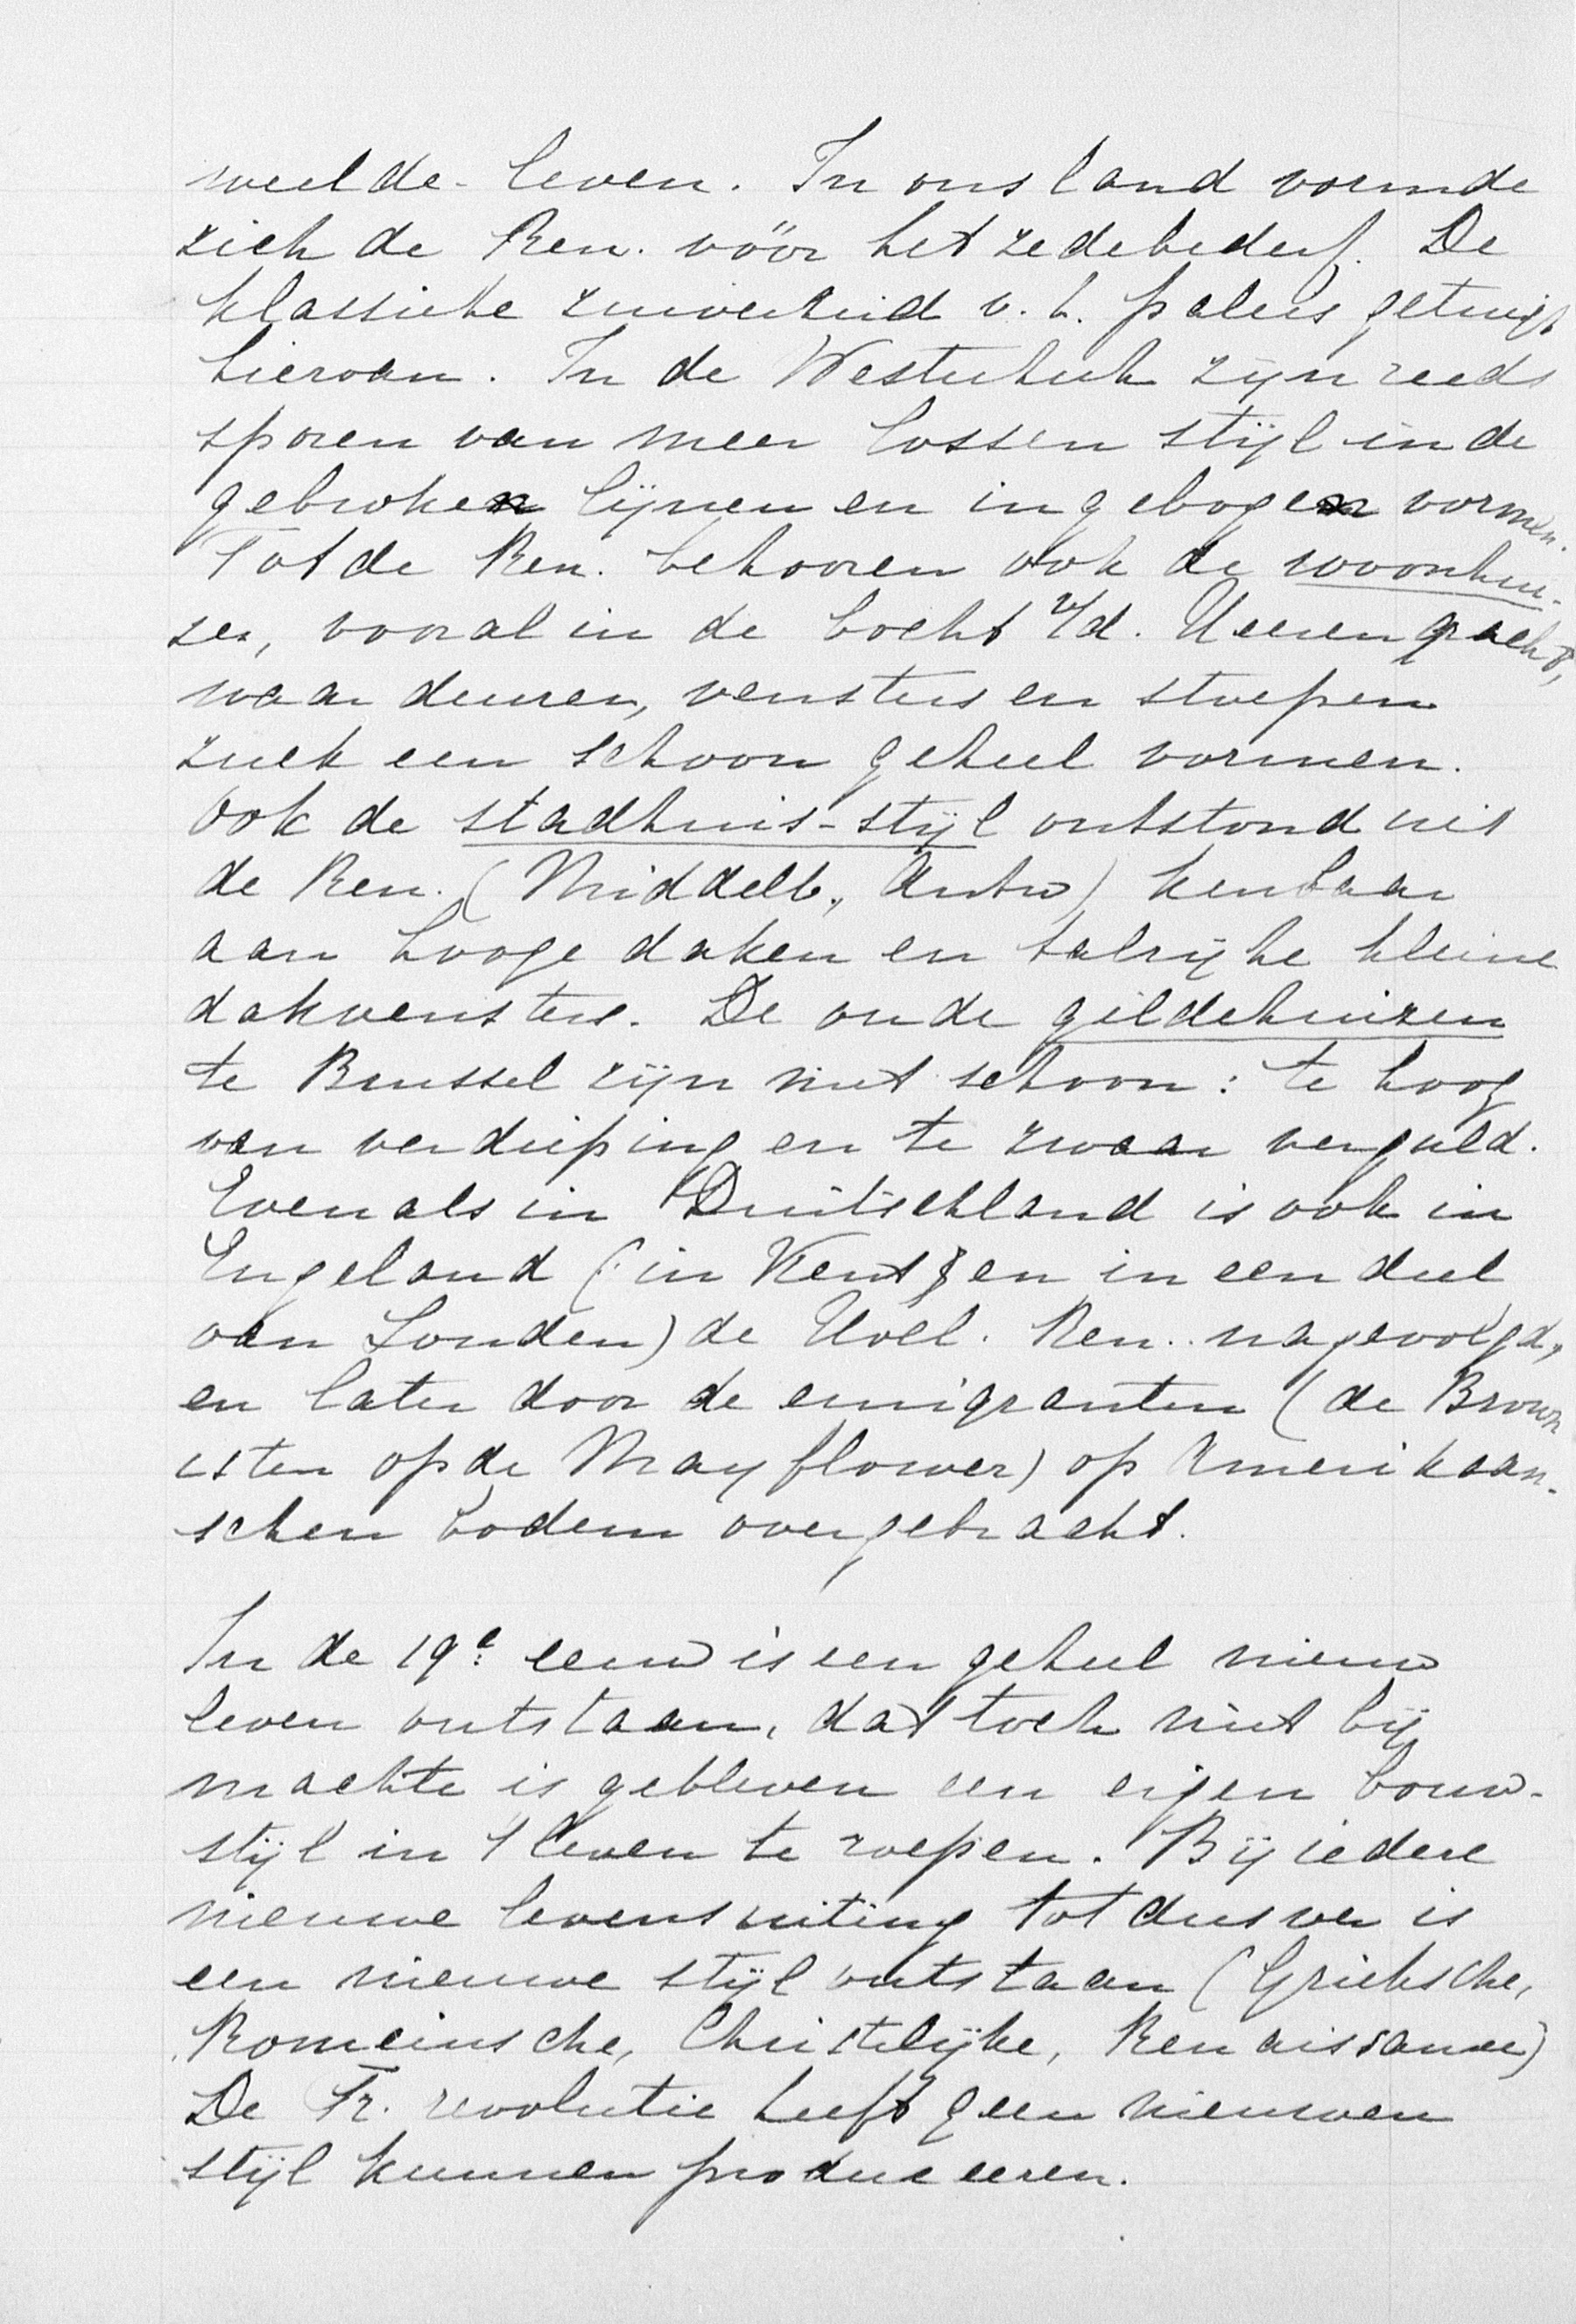 weelde-leven. In ons land vormde
zich de Ren. vóór het zedebederf. De
klassieke zuiverheid v. h. paleis getuigt
hiervan. In de Westerkerk zijn reeds
sporen van meer lossen stijl in de
gebroken lijnen en in gebogen vormen.
Tot de Ren. behooren ook de woonhui-
zen, vooral in de bocht v/d. Heerengracht,
waar deuren, vensters en stoepen
zulk een schoon geheel vormen.
Ook de stadhuis-stijl ontstond uit
de Ren. (Middelb., Antw) kenbaar
aan hooge daken en talrijke kleine
dakvensters. De oude gildehuizen
te Brussel zijn niet schoon: te hoog
van verdieping en te zwaar verguld.
Evenals in Duitschland is ook in
Engeland (in Kent en in een deel
van Londen) de Holl. Ren. nagevolgd,
en later door de emigranten (de Brown
isten op de Mayflower) op Amerikaan-
schen bodem overgebracht.
In de 19e eeuw is een geheel nieuw
leven ontstaan, dat toch niet bij
machte is gebleven een eigen bouw-
stijl in 't leven te roepen. Bij iedere
nieuwe levensuiting tot dusver is
een nieuwe stijl ontstaan (Grieksche,
Romeinsche, Christelijke, Renaissance)
De Fr. revolutie heeft geen nieuwen
stijl kunnen produceeren.